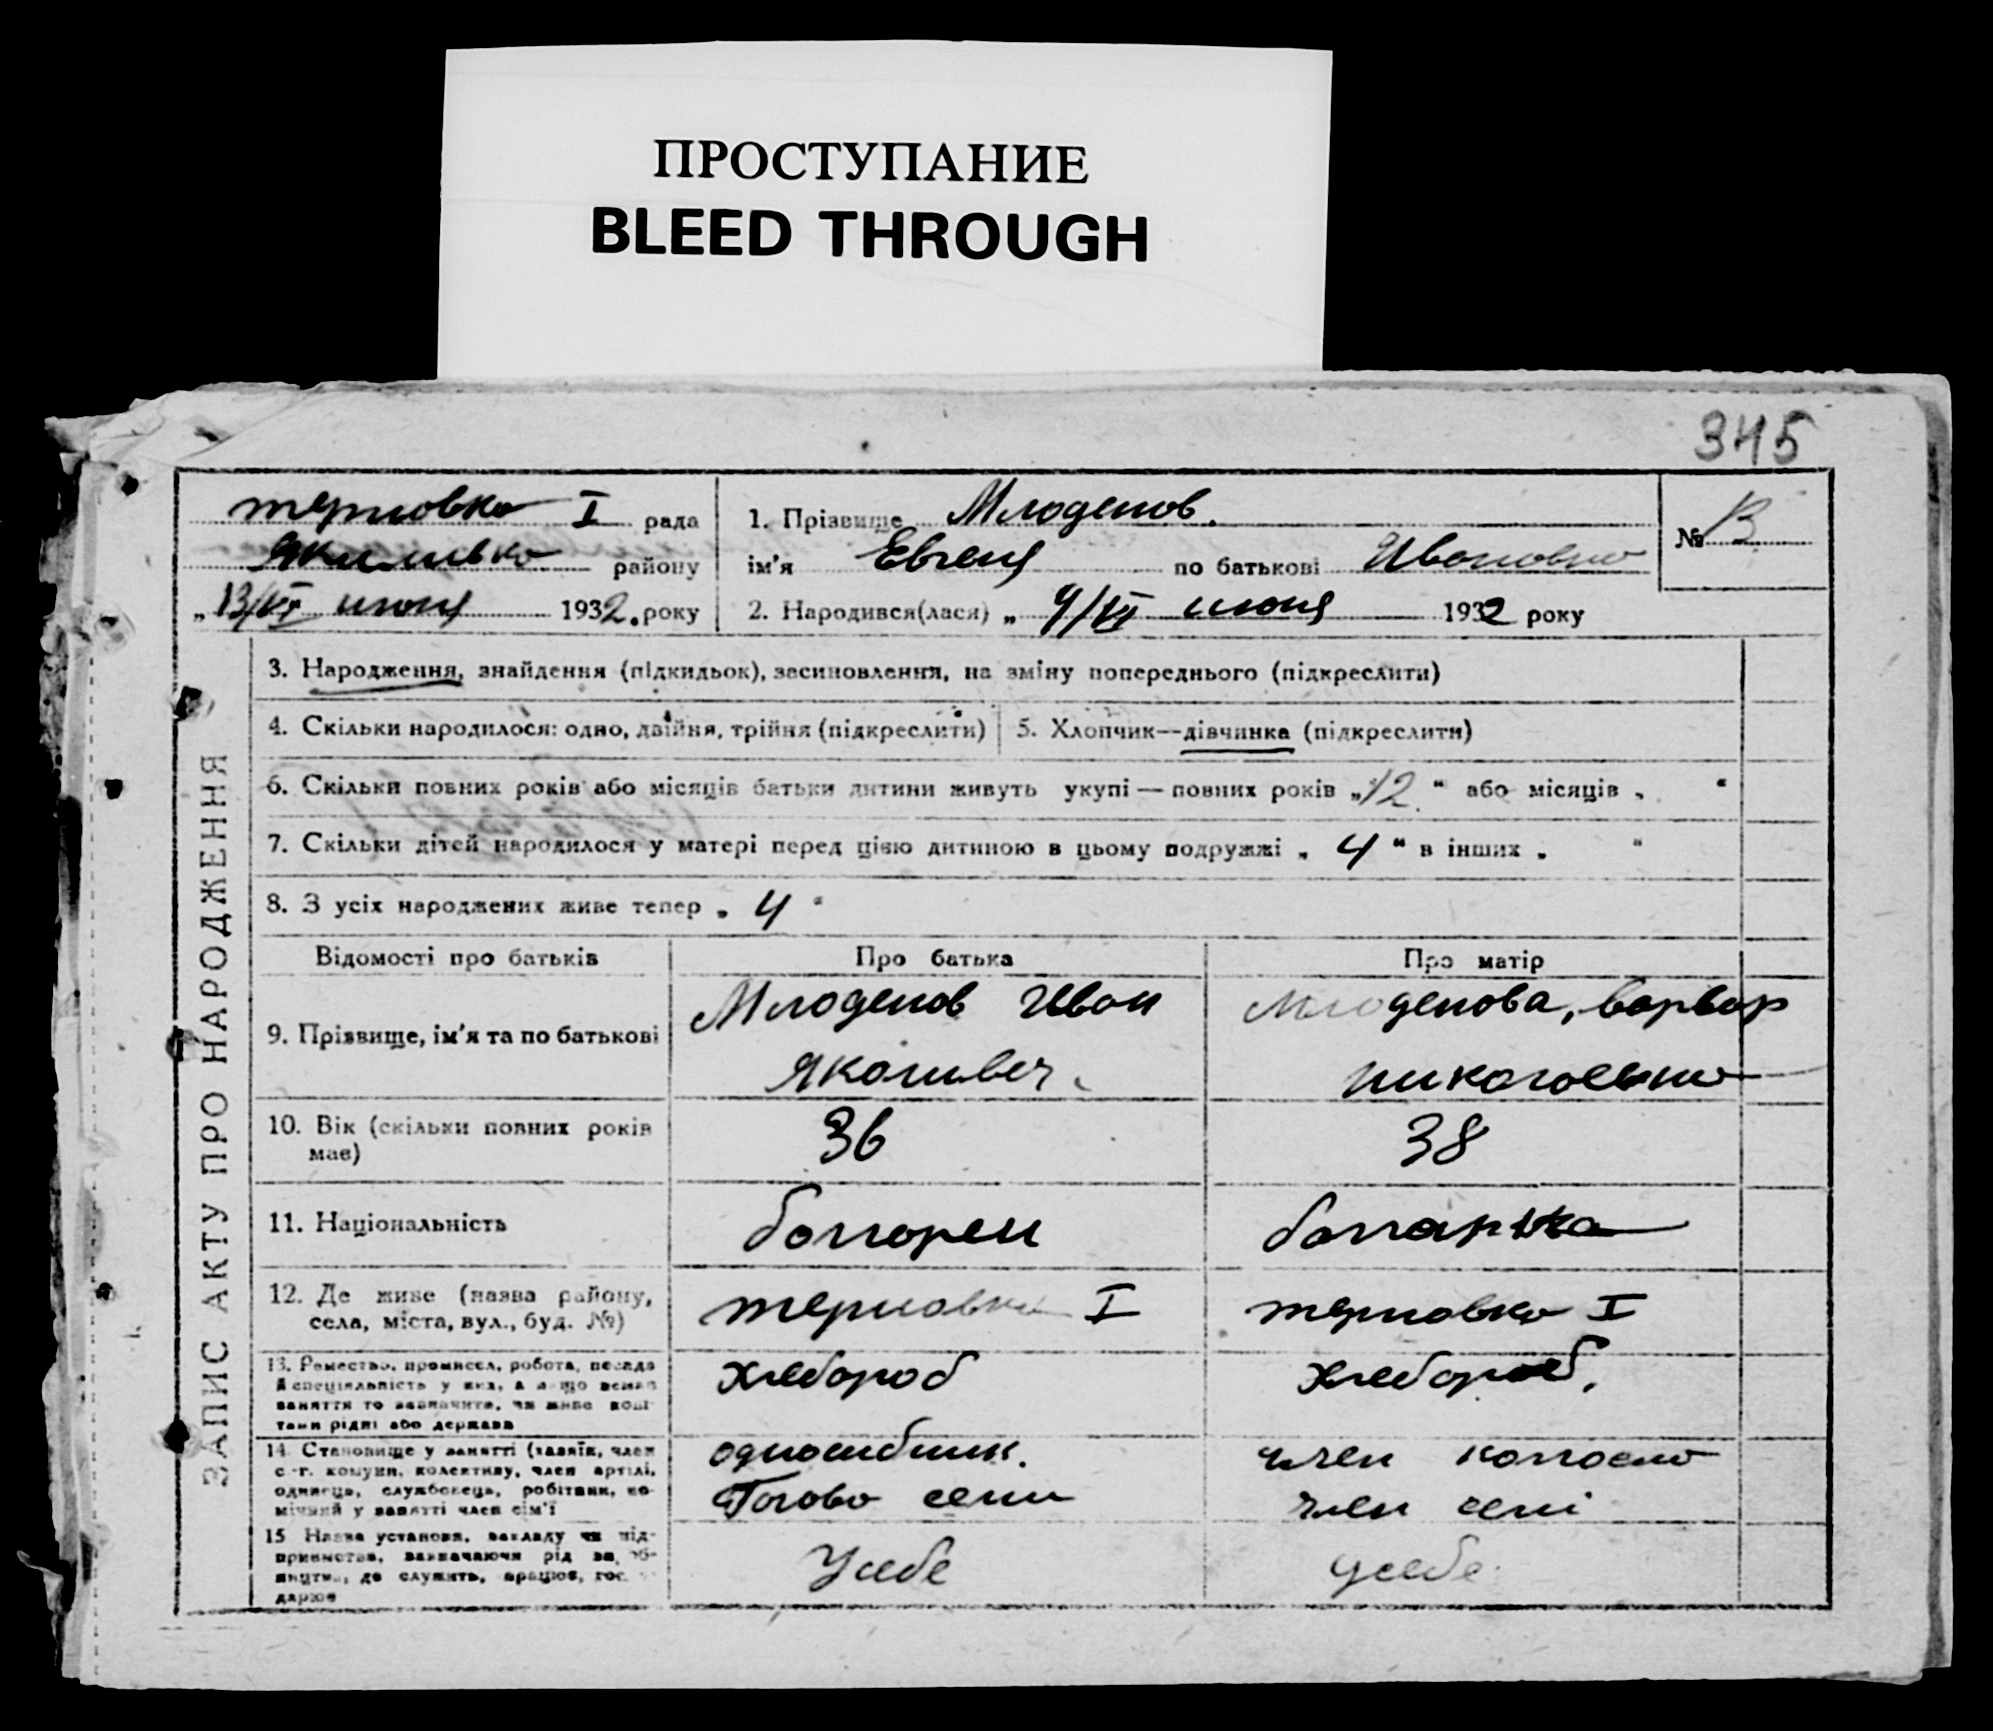 ПРОСТУПАНИЕ
BLEED THROUGH
345
терновка I рада
Якимівка району
„13/VI июня 1932. року
1. Прізвище Младенов.
ім'я Евгения по батькові Ивановна
№ 13
2. Народився(лася) „ 9/VI июня 1932 року
ЗАПИС АКТУ ПРО НАРОДЖЕННЯ
3. Народження, знайдення (підкидьок), засиновлення, на зміну попереднього (підкреслити)
4. Скільки народилося: одно, двійня, трійня (підкреслити)
5. Хлопчик—дівчинка (підкреслити)
6. Скільки повних років або місяців батьки дитини живуть укупі — повних років „12“ або місяців „ “
7. Скільки дітей народилося у матері перед цією дитиною в цьому подружжі „ 4 “ в інших „ “
8. З усіх народжених живе тепер „ 4 “
Відомості про батьків Про батька Про матір
9. Прізвище, ім'я та по батькові
Младенов Иван
Яколивеч.
Младенова, варвар
николоевно
10. Вік (скільки повних років
має)
36
38
11. Національність
болгорец
болгарка
12. Де живе (назва району,
села, міста, вул., буд. №)
терновка I
терновка I
13. Ремество, промисел, робота, посада
й спеціяльність у них, а якщо немає
заняття то зазначити, чи живе кошт
тами рідні або держава
хлебороб
хлебороб.
14. Становище у занятті (хазяїн, член
с.-г. комуни, колективу, член артілі,
одинець, службовець, робітник, по-
мічний у занятті член сім'ї
односибник.
Голово семи
член колгоспо
член семі
15 Назва установи, закладу чи під-
приємства, зазначаючи рід
де служить, працює, гос
дарює
У себе
у себе